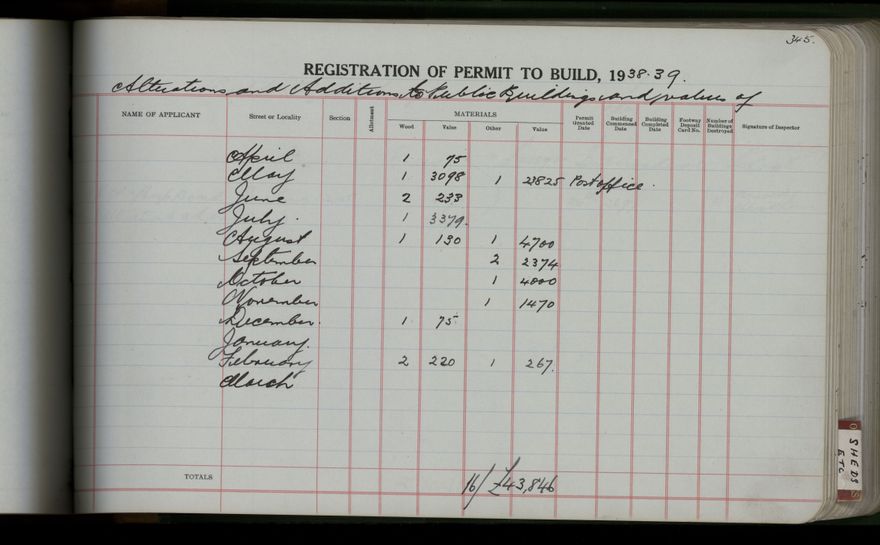 345.
REGISTRATION OF PERMIT TO BUILD, 1938-39.
Alterations and Additions to Public Buildings and values of
NAME OF APPLICANT Street or Locality Section Allotment MATERIALS Wood Value Other Value Permit Granted Date Building Commenced Date Building Completed Date Footway Deposit Card No. Number of Buildings Destroyed Signature of Inspector
April 1 75
May 1 3098 1 23825 Post office.
June 2 233
July. 1 3379.
August 1 130 1 4700
September 2 2374
October 1 4000
November 1 1470
December. 1 75
January.
February 2 220 1 267.
March
TOTALS 16/ £43,846
SHEDS
ETC